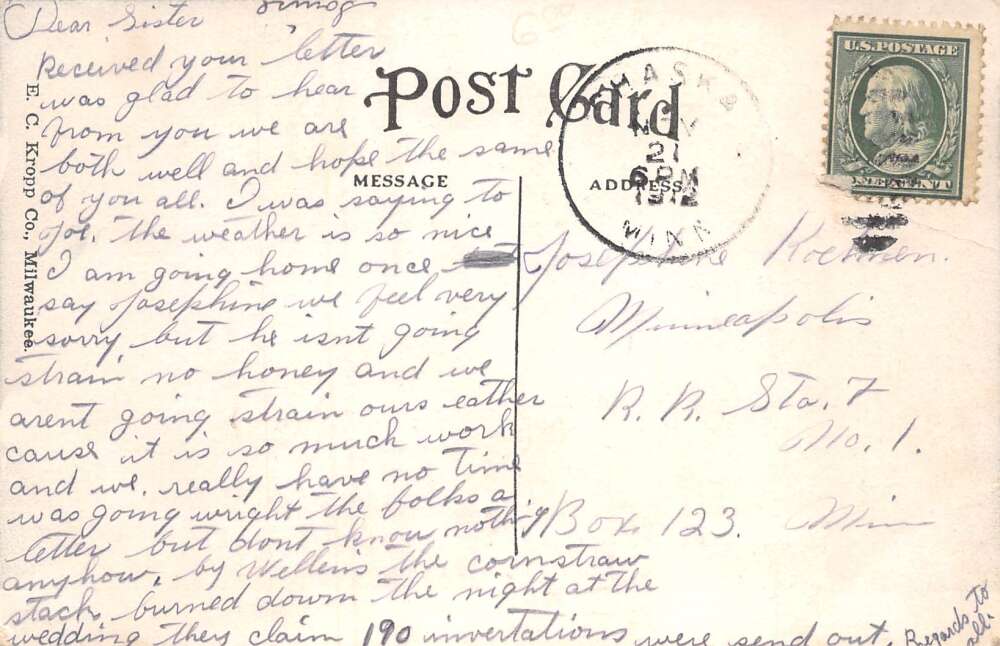 Dear Sister
Received your letter
was glad to hear
from you we are
both well and hope the same
of you all. I was saying to
Joe. the weather is so nice
I am going home once
say Josephine we feel very
sorry but he isnt going
strain no honey and we
arent going strain ours eather
cause it is so much work
and we. really have no time
was going wright the folks a
letter but dont know nothing
anyhow. by Wellens the cornstraw
stack burned down the night at the
wedding they claim 190 invertations were send out.
Regards to
all.
E. C. Kropp Co., Milwaukee.
Post Card
MESSAGE
ADDRESS
CHASKA
NOV
21
6 PM
1912
MINN
U.S. POSTAGE
ONE CENT
Josephine Koehnen.
Minneapolis
R. R. Sta. F
No. 1.
Box 123. Minn